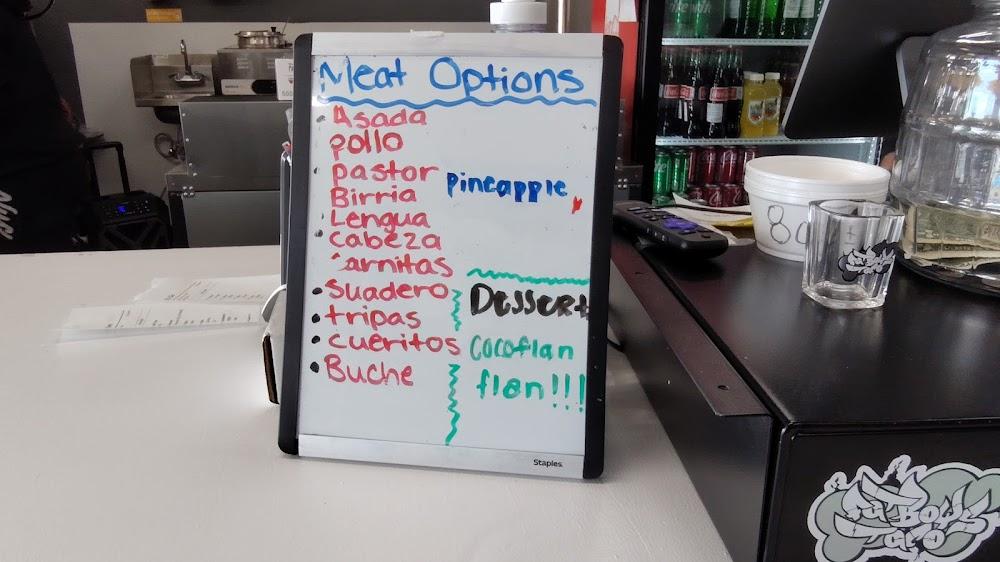 Meat Options
Asada
pollo
pastor pineapple
Birria
Lengua
Cabeza
Carnitas
Suadero
tripas
cueritos
Buche
Dessert
Cocoflan
flan!!!
Staples
80